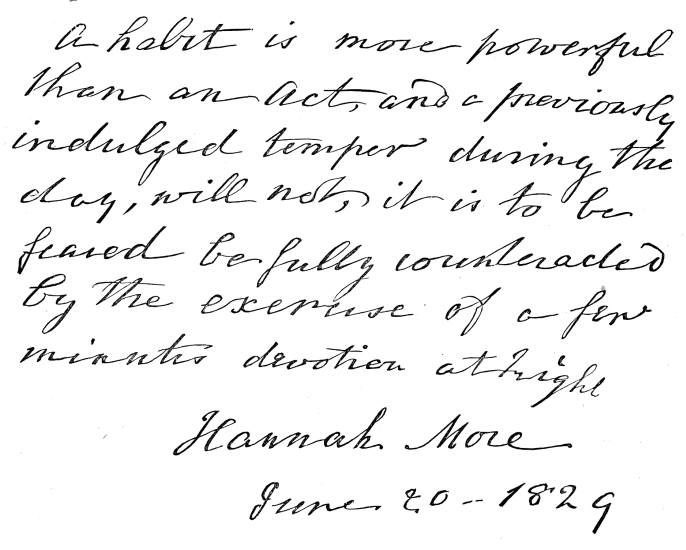 A habit is more powerful
than an Act, and a previously
indulged temper during the
day, will not, it is to be
feared be fully counteracted
by the exercise of a few
minutes devotion at Night
Hannah More
June 20 - 1829